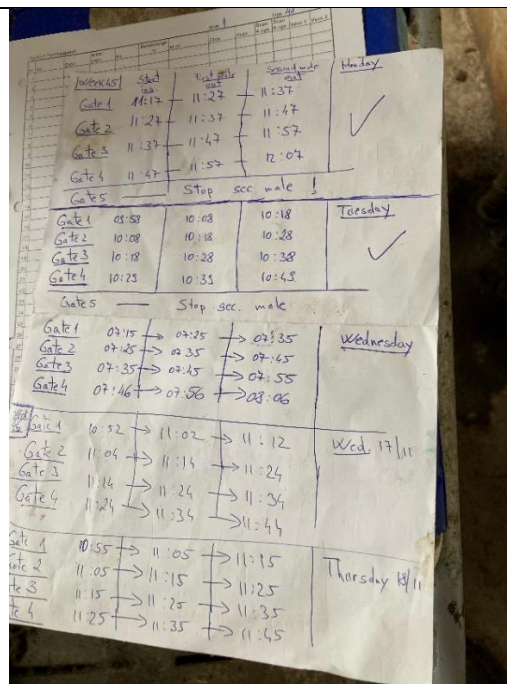 Week 45 Start First male out Second male out Monday
Gate 1 11:17 — 11:27 — 11:37
Gate 2 11:27 — 11:37 — 11:47
Gate 3 11:37 — 11:47 — 11:57
Gate 4 11:47 — 11:57 12:07
Gate 5 — Stop sec. male !
Gate 1 09:58 10:08 10:18 Tuesday
Gate 2 10:08 10:18 10:28
Gate 3 10:18 10:28 10:38
Gate 4 10:29 10:39 10:49
Gate 5 — Stop sec. male
Gate 1 07:15 → 07:25 → 07:35 Wednesday
Gate 2 07:25 → 07:35 → 07:45
Gate 3 07:35 → 07:45 → 07:55
Gate 4 07:46 → 07:56 → 08:06
Gate 1 10:52 → 11:02 → 11:12 Wed. 17/11
Gate 2 11:04 → 11:14 → 11:24
Gate 3 11:14 → 11:24 → 11:34
Gate 4 11:24 → 11:34 → 11:44
Gate 1 10:55 → 11:05 → 11:15 Thursday 18/11
Gate 2 11:05 → 11:15 → 11:25
te 3 11:15 → 11:25 → 11:35
te 4 11:25 → 11:35 → 11:45